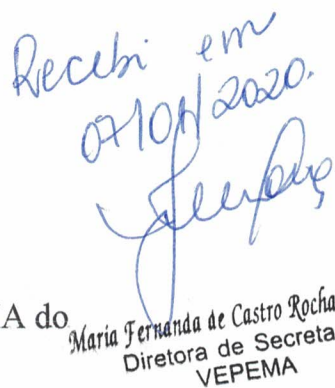 Recebi em
07/01/2020.
A do
Maria Fernanda de Castro Rocha
Diretora de Secreta
VEPEMA